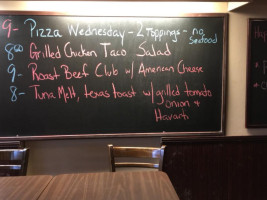 9- Pizza Wednesday - 2 toppings - no
Seafood
8⁶⁰ Grilled Chicken Taco Salad
9- Roast Beef Club w/ American Cheese
8- Tuna Melt, texas toast w/ grilled tomato
onion &
Havarti